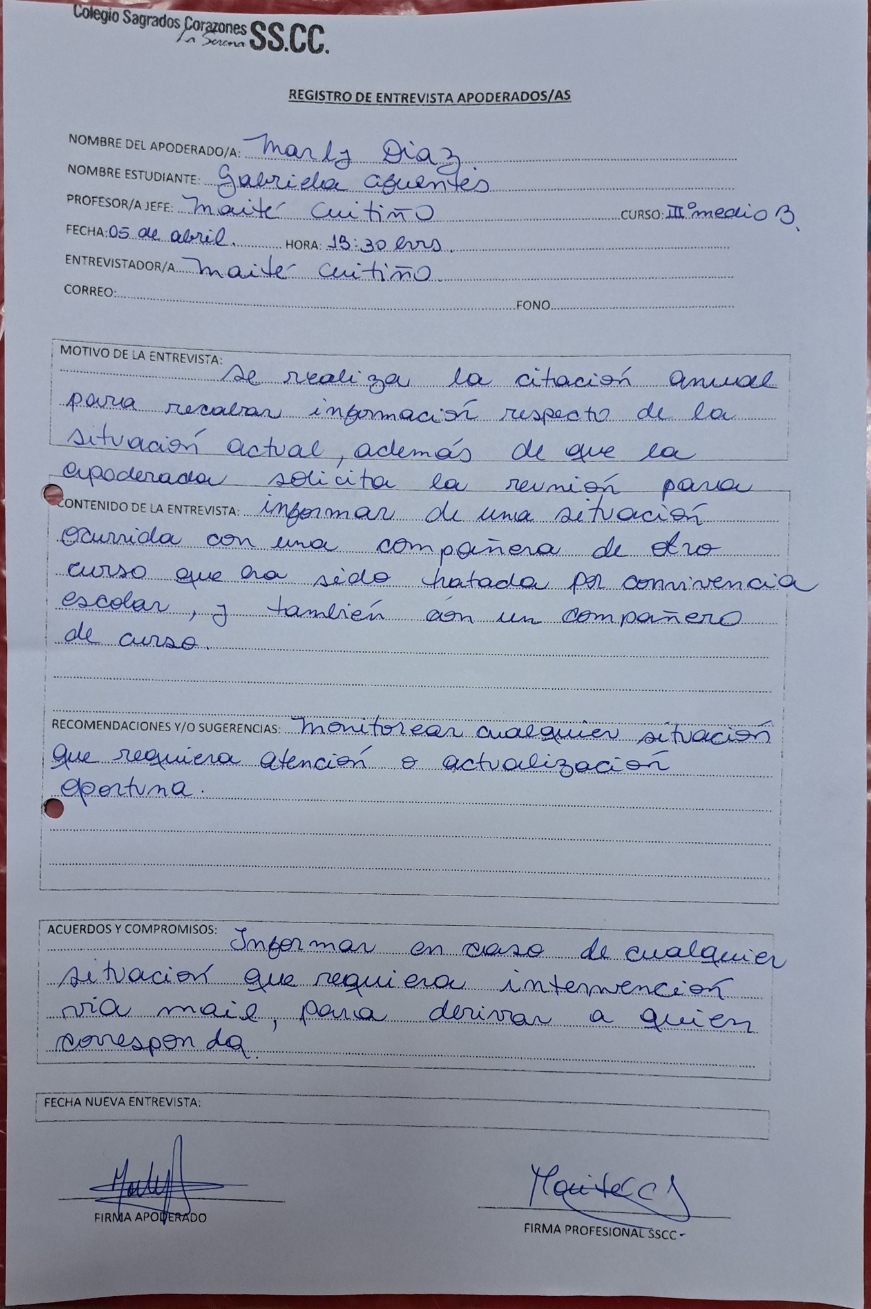 Colegio Sagrados Corazones
La Serena SS.CC.
REGISTRO DE ENTREVISTA APODERADOS/AS
NOMBRE DEL APODERADO/A: Marly Diaz
NOMBRE ESTUDIANTE: Gabriela Cifuentes
PROFESOR/A JEFE: Maité Cuitiño CURSO: IIIº medio B.
FECHA: 05 de abril. HORA: 13:30 hrs.
ENTREVISTADOR/A Maité Cuitiño.
CORREO: FONO
MOTIVO DE LA ENTREVISTA: Se realiza la citación anual
para recabar información respecto de la
situación actual, además de que la
apoderada solicita la reunión para
CONTENIDO DE LA ENTREVISTA: informar de una situación
ocurrida con una compañera de otro
curso que ha sido tratada por convivencia
escolar, y también con un compañero
de curso.
RECOMENDACIONES Y/O SUGERENCIAS: Monitorear cualquier situación
que requiera atención o actualización
oportuna.
ACUERDOS Y COMPROMISOS: Informar en caso de cualquier
situación que requiera intervención
vía mail, para derivar a quien
corresponda.
FECHA NUEVA ENTREVISTA:
FIRMA APODERADO
FIRMA PROFESIONAL SSCC-